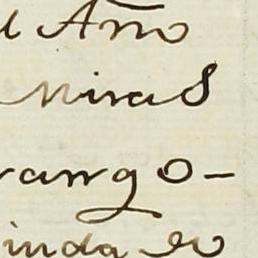 l Año
Miras
rango-
inda